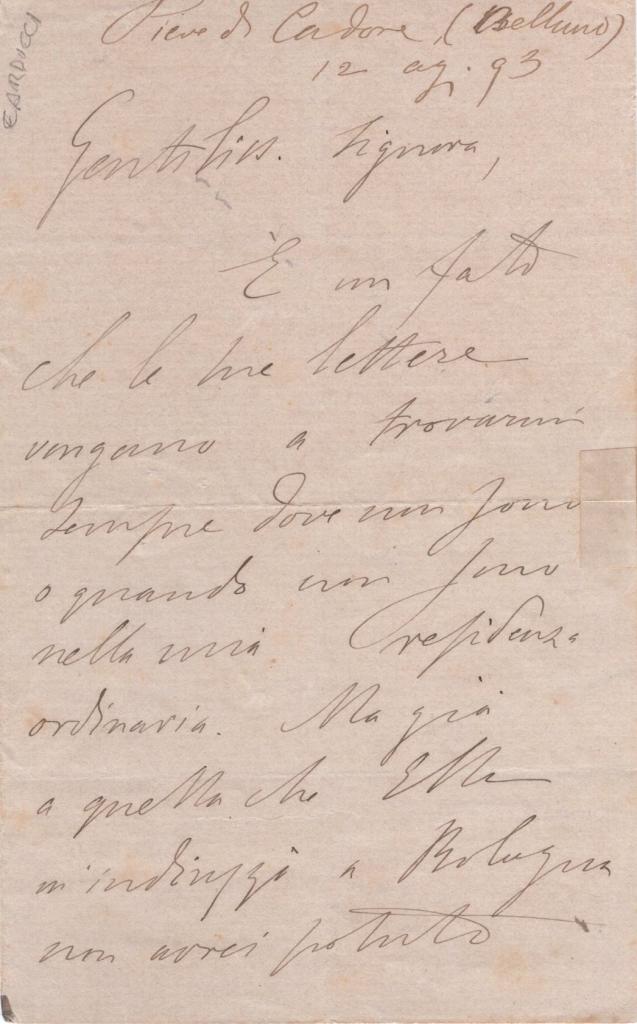 CARDUCCI
Pieve di Cadore, (Belluno)
12 ag. 93
Gentiliss. Signora,
È un fato
che le sue lettere
vengano a trovarmi
sempre dove non sono
o quando non sono
nella mia residenza
ordinaria. Ma già
a quella che Ella
m'indirizzò a Bologna
non avrei potuto